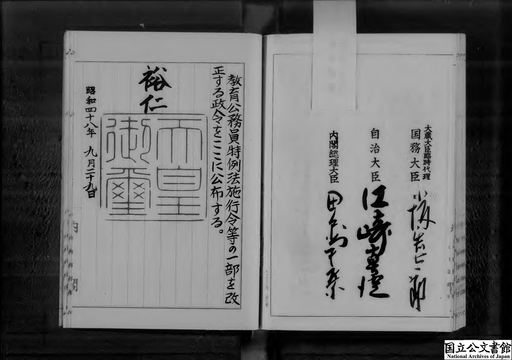 大蔵大臣臨時代理
国務大臣 小坂善太郎
自治大臣 江崎真澄
内閣総理大臣 田中角榮
教育公務員特例法施行令等の一部を改
正する政令をここに公布する。
裕仁
天皇
御璽
昭和四十八年 九月二十九日
内閣
国立公文書館
National Archives of Japan